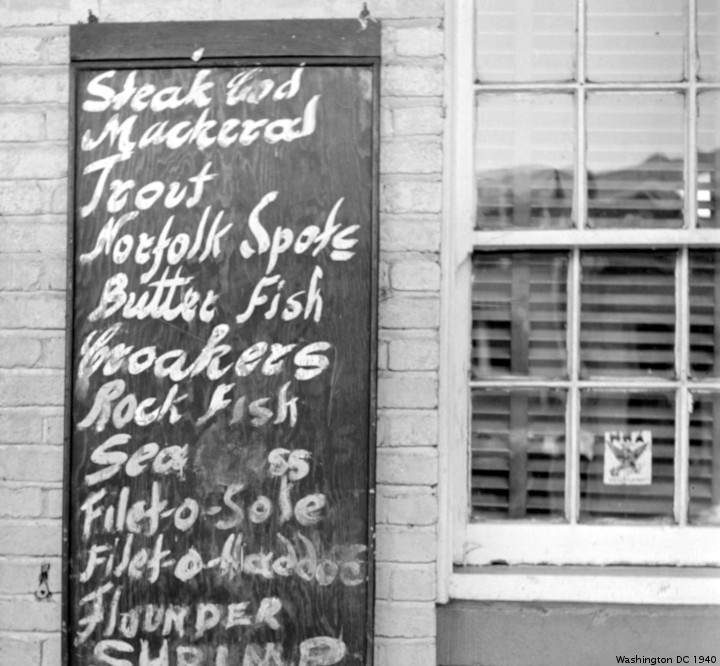 Steak Cod
Mackeral
Trout
Norfolk Spots
Butter Fish
Croakers
Rock Fish
Sea
Filet-o-Sole
Filet-o-Haddoc
FlOUNDER
SHRIMP
NRA
Washington DC 1940